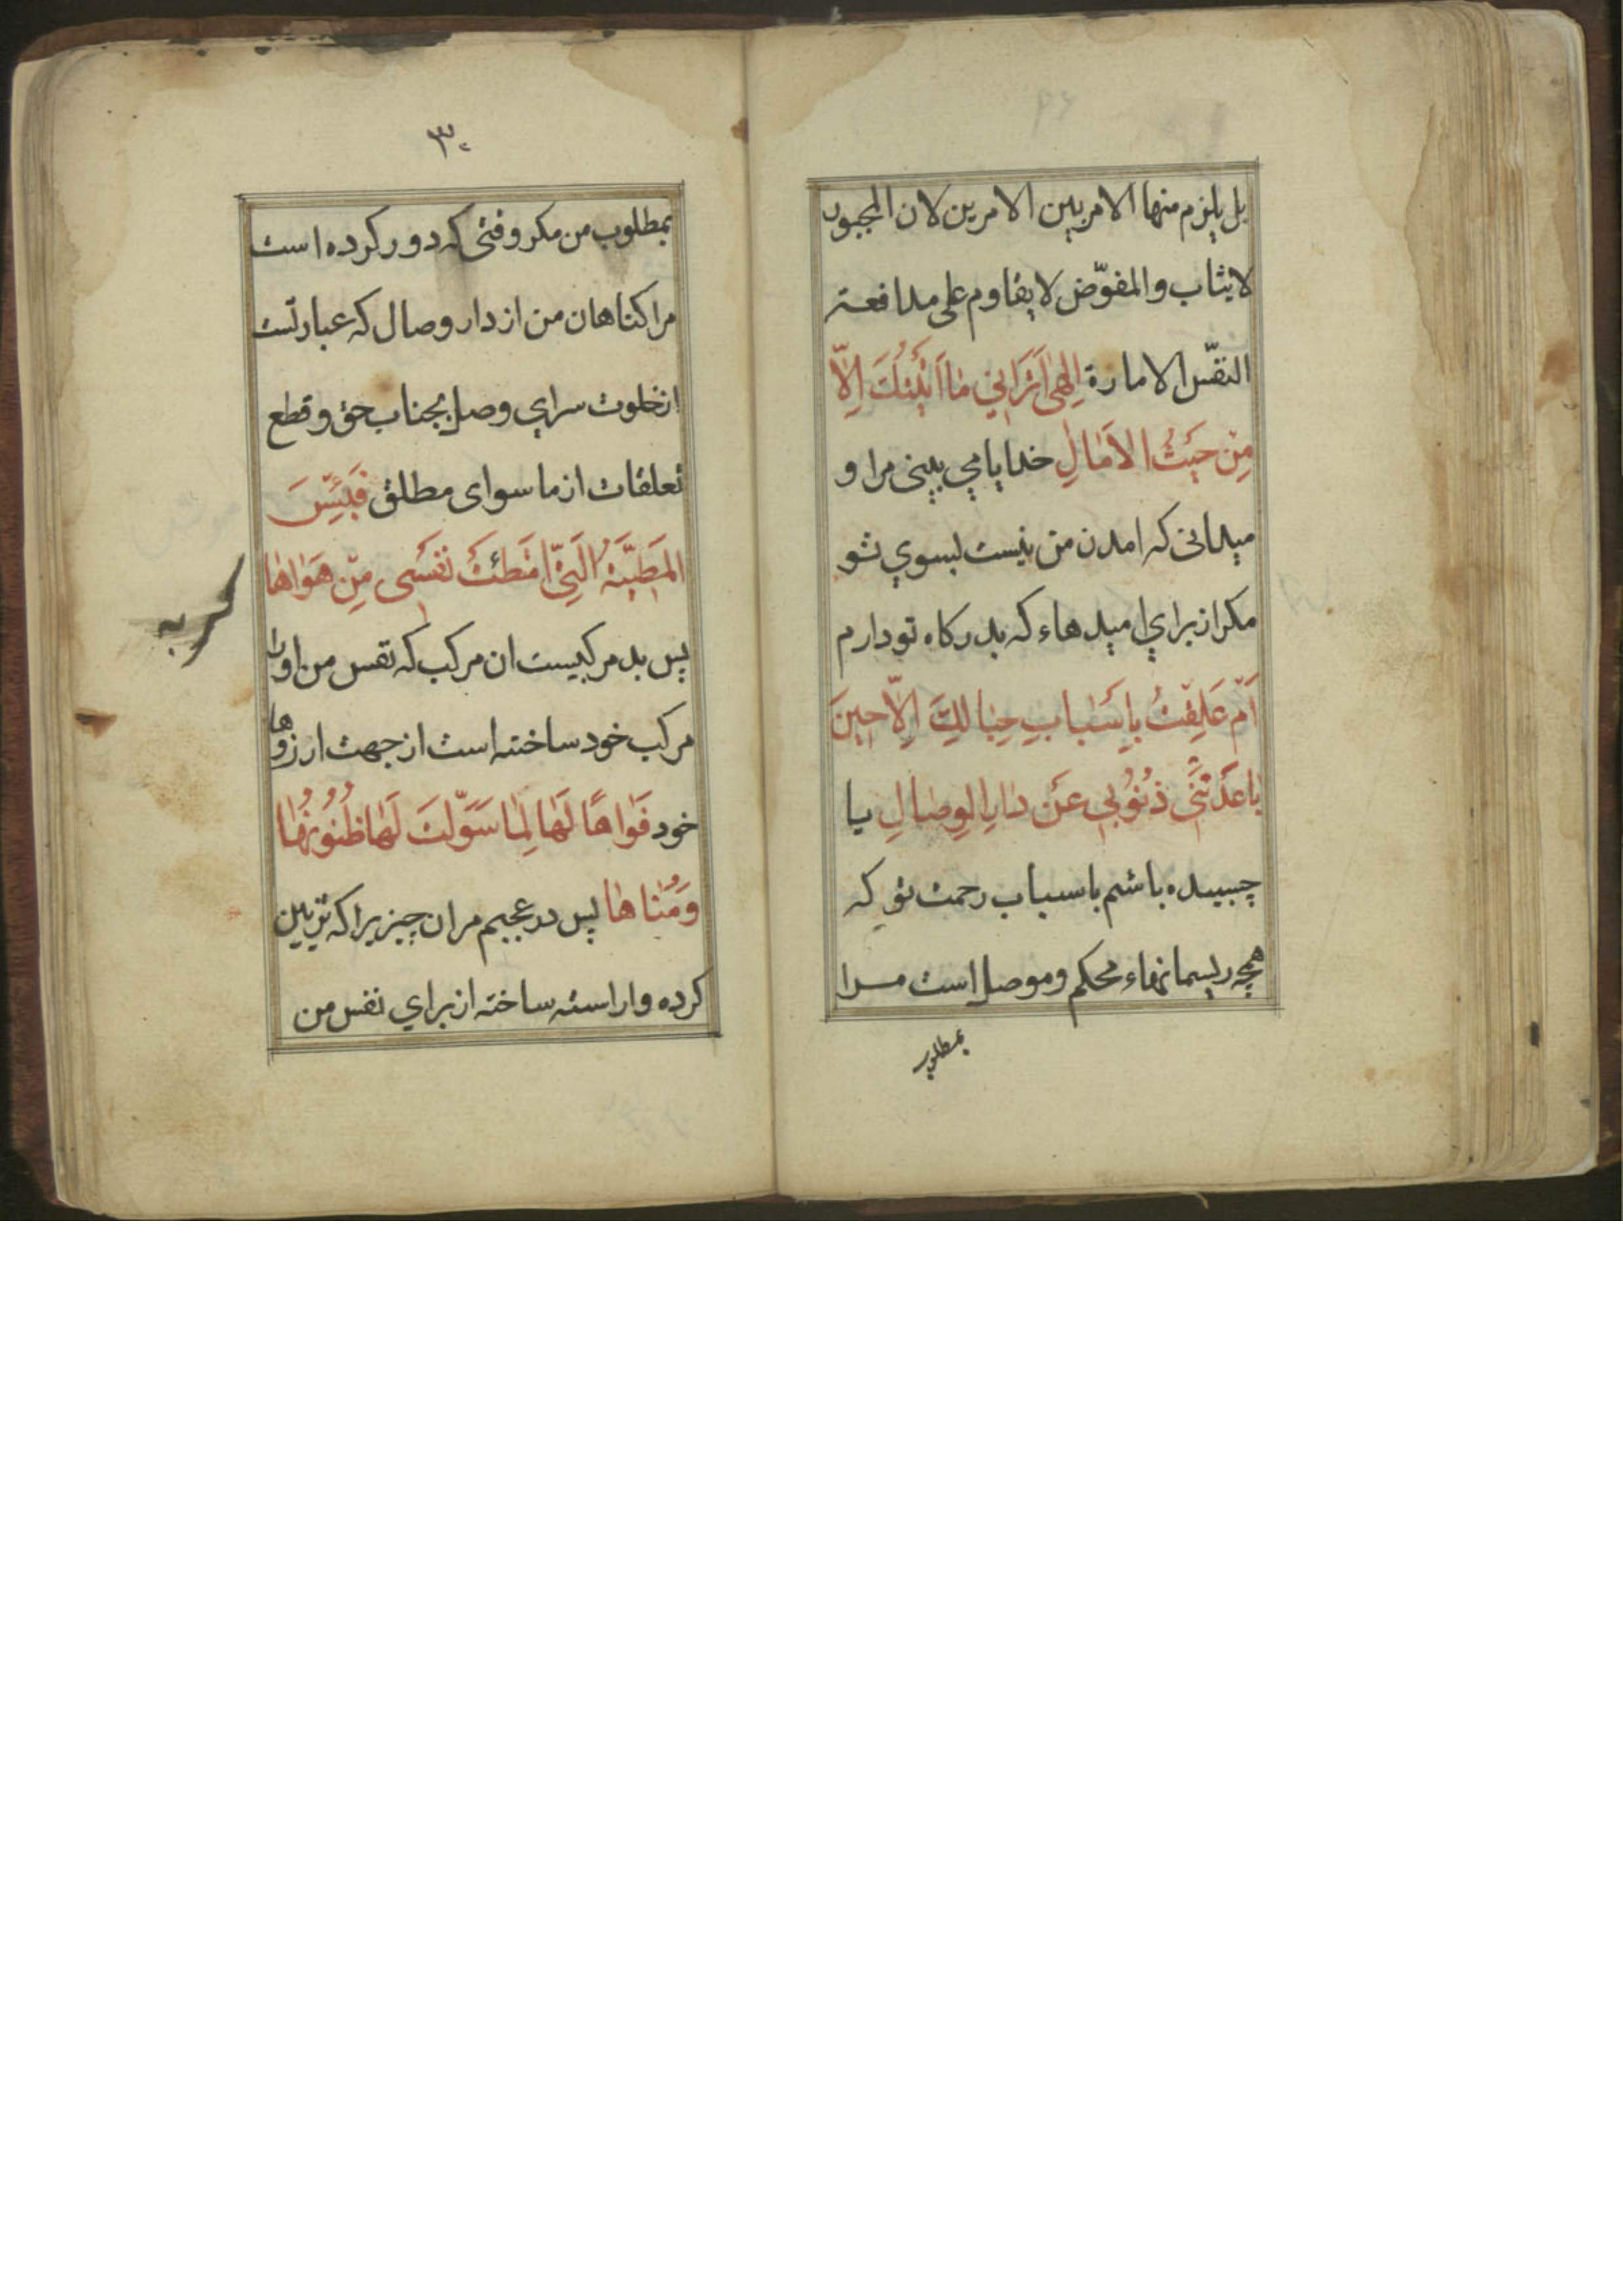 بل یلزم منها الامر بین الامرین لان المجبور
لا یثاب والمفوّض لا یقاوم علی مدافعة
النفس الامارة اِلهی اَتَرانی ما اَتَیْتُكَ اِلّا
مِنْ حَیْثُ الاٰمالِ خدایا می بینی مرا و
میدانی که امدن من نیست بسوي تو
مکر از براي امید هاء که بدرکاه تو دارم
اَمْ عَلِقْتُ بِاَسْبابِ حِبالِكَ اِلّا حینَ
باعَدَتْنی ذُنُوبی عَنْ دارِ الوِصالِ یا
چسبیده باشم باسباب رحمت تو که
همچه ریسمانهاء محکم وموصل است مرا
بمطلوب
۳۰
بمطلوب من مکر وقتی که دور کرده است
مرا کناهان من از دار وصال که عبارتست
ازخلوت سراي وصل بجناب حق وقطع
تعلقات از ما سوای مطلق فَبِئْسَ
المَطِیَّةُ الَّتی امْتَطَئَتْ نَفْسی مِنْ هَواها
پس بد مرکبیست ان مرکب که نفس من اورا
مرکب خود ساخته است از جهت ارزوها
خود فَواهًا لَها لِما سَوَّلَتْ لَها ظُنُونُها
وَمُناها پس در عجبم مر ان چیزیرا که تزیین
کرده واراسته ساخته از براي نفس من